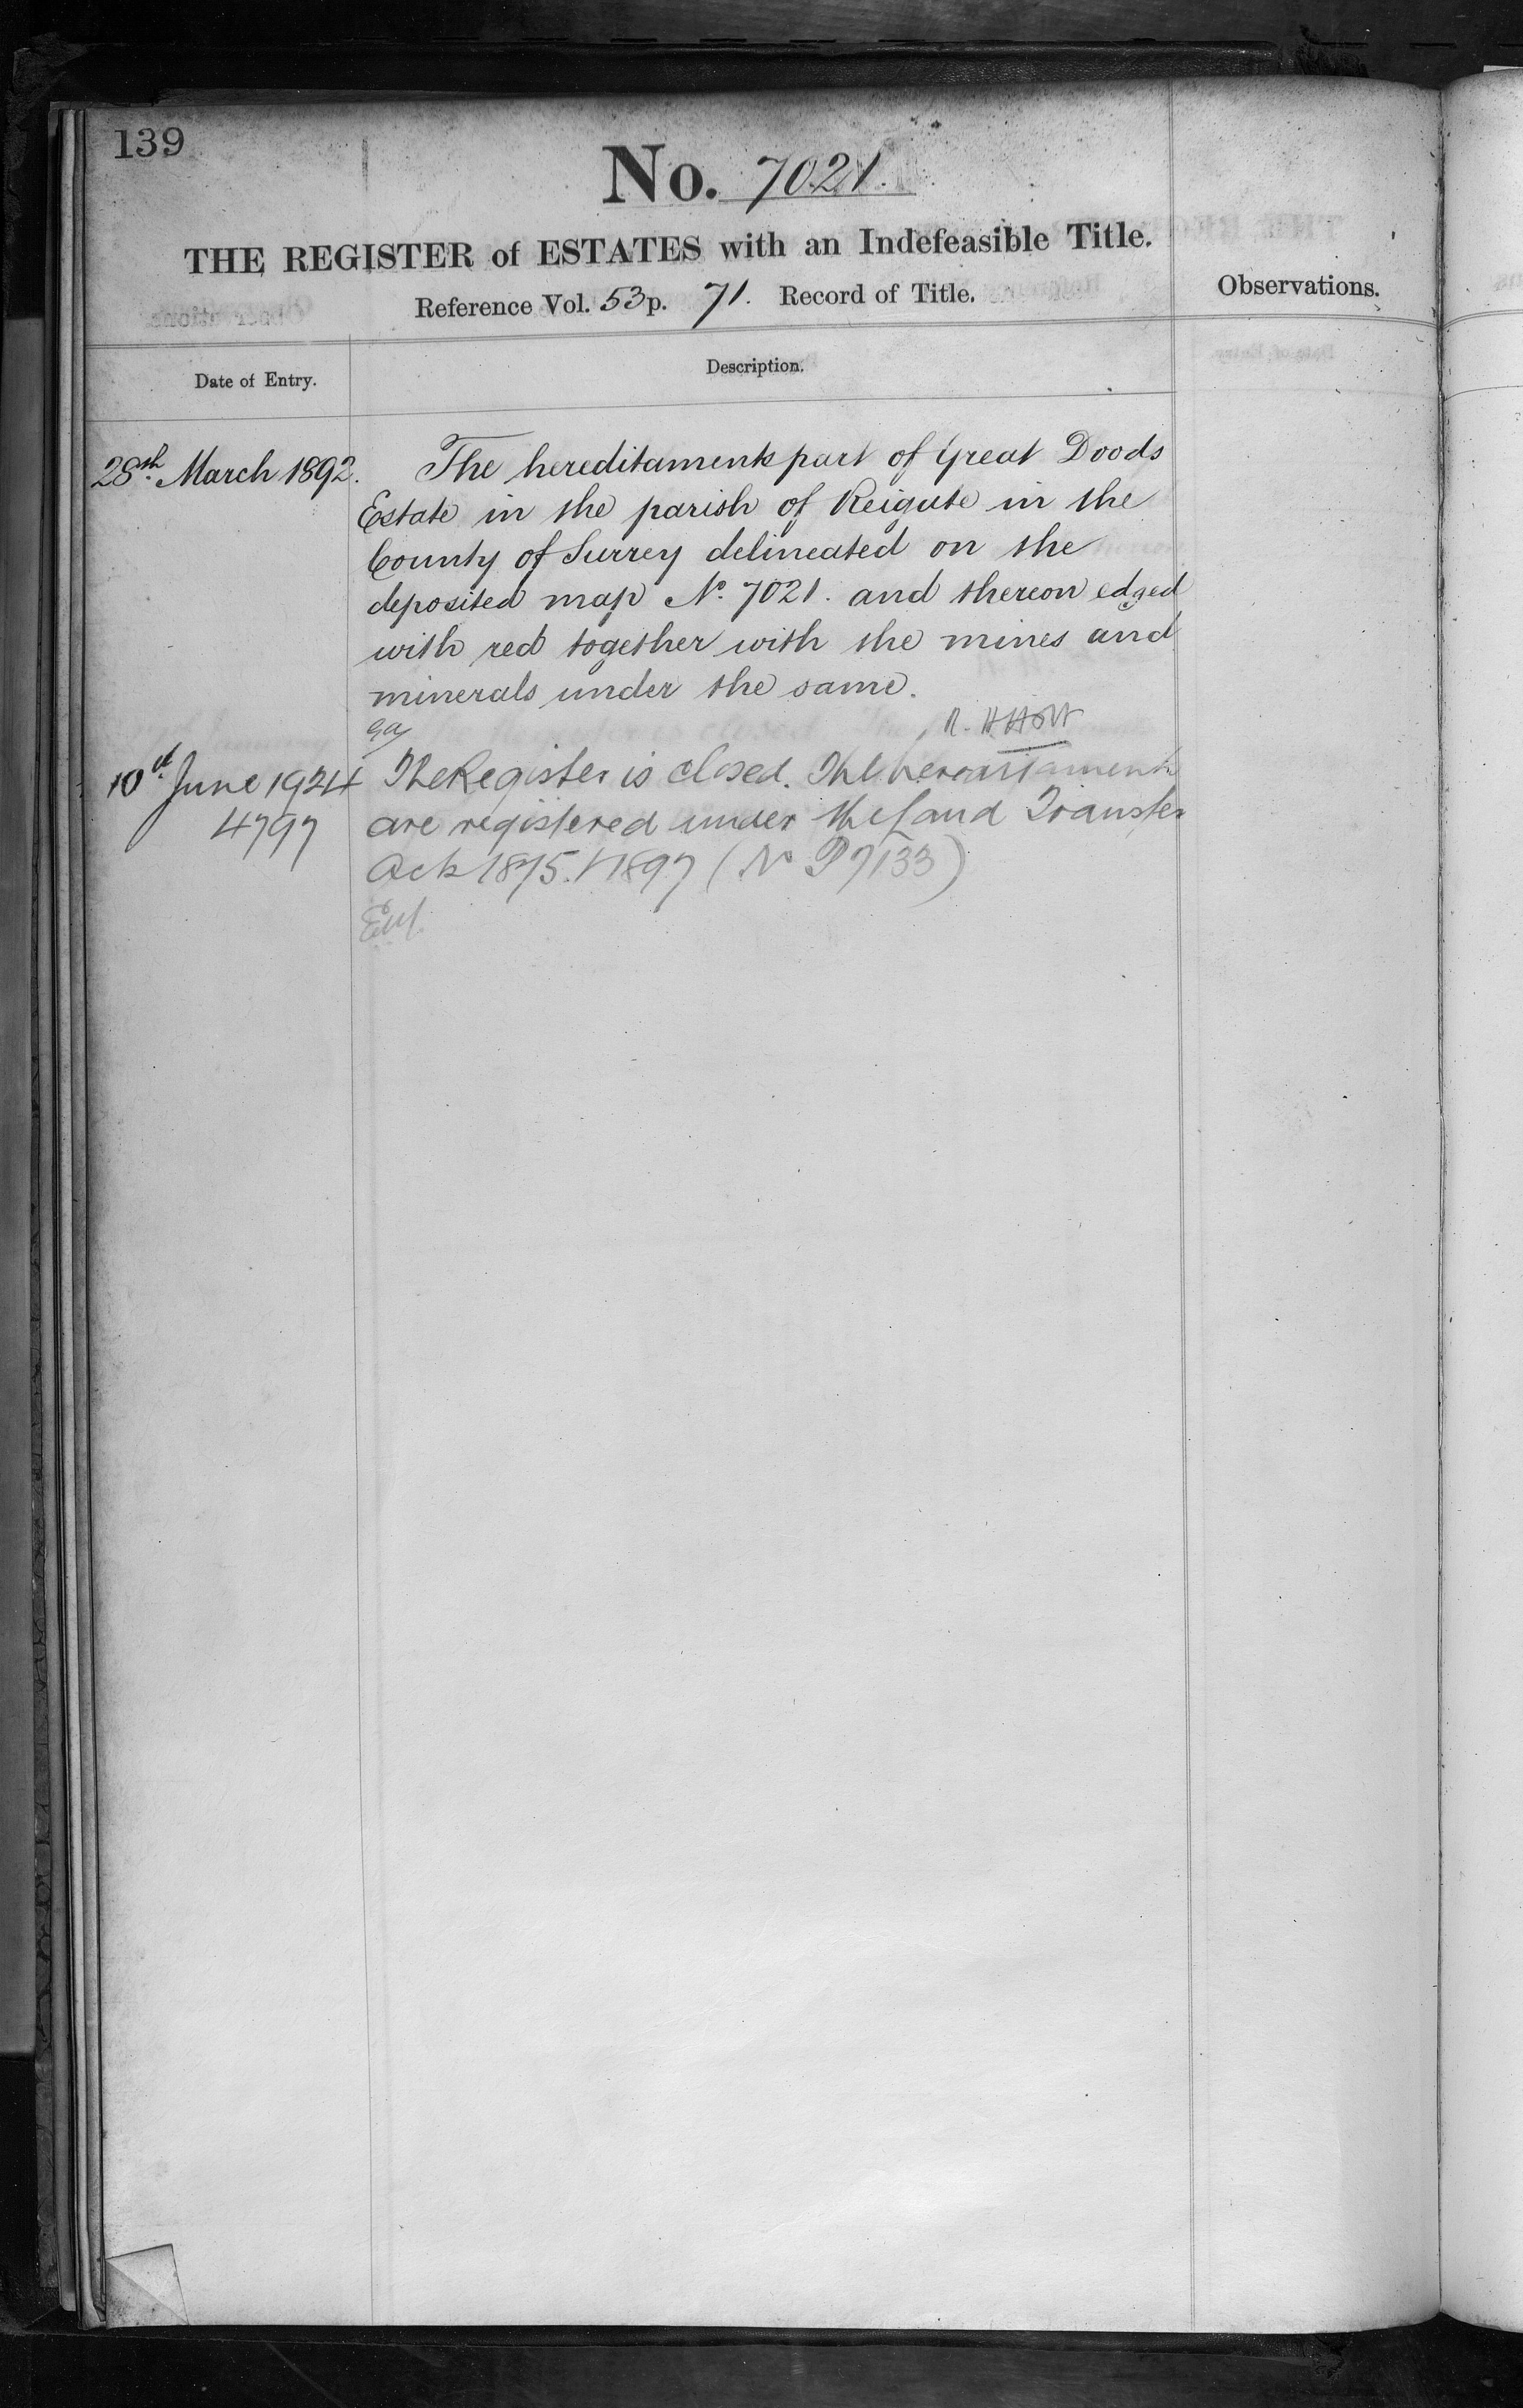 139
No. 7021.
THE REGISTER of ESTATES with an Indefeasible Title.
Reference Vol. 53 p. 71. Record of Title.
Observations.
Date of Entry.
Description.
28th. March 1892.
The hereditaments part of Great Doods
Estate in the parish of Reigate in the
County of Surrey delineated on the
deposited map No. 7021. and thereon edged
with red together with the mines and
minerals under the same.
R. H Holt
10th June 1924
4797
The Register is closed. The hereditaments
are registered under the Land Transfer
Acts 1875 & 1897 (No P7133)